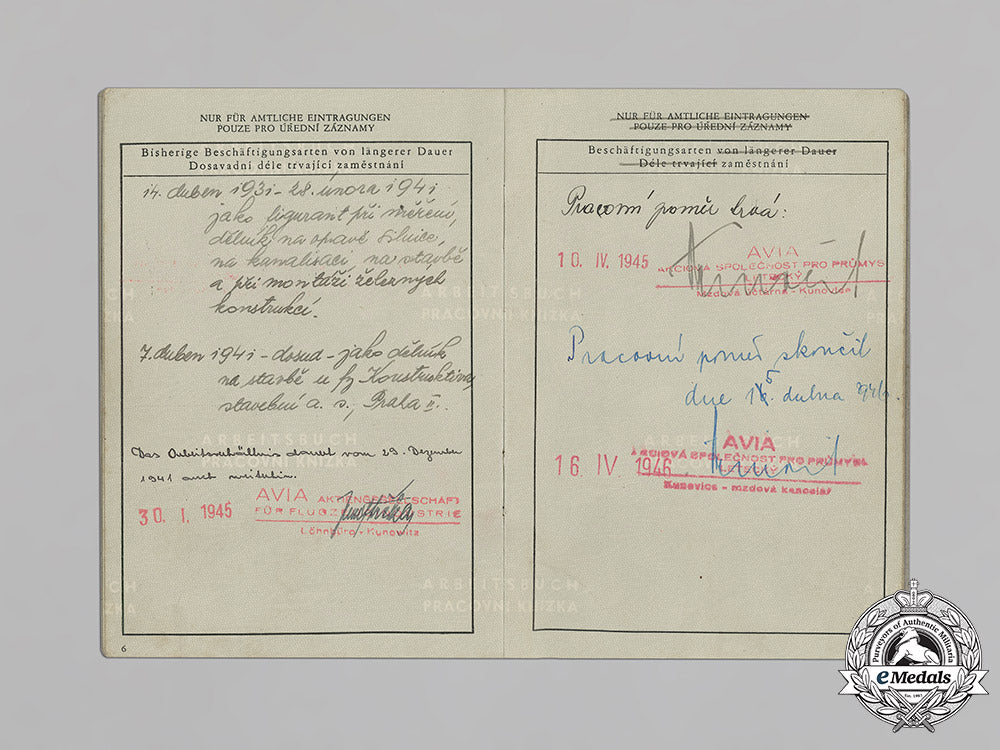 NUR FÜR AMTLICHE EINTRAGUNGEN
POUZE PRO ÚŘEDNÍ ZÁZNAMY
Bisherige Beschäftigungsarten von längerer Dauer
Dosavadní déle trvající zaměstnání
14. duben 1931 - 28. února 1941
jako figurant při měření,
dělník na opravě silnice,
na kanalisaci, na stavbě
a při montáži železných
konstrukcí.
7. duben 1941 - dosud - jako dělník
na stavbě u fy Konstruktiva
stavební a. s., Praha II.
ARBEITSBUCH
PRACOVNÍ KNÍŽKA
Das Arbeitsverhältnis dauert vom 29. Dezember
1941 auch weiterhin.
30. I. 1945
AVIA AKTIENGESELLSCHAFT
FÜR FLUGZEUGINDUSTRIE
Löhnbüro - Kunowitz
ARBEITSBUCH
PRACOVNÍ KNÍŽKA
6
NUR FÜR AMTLICHE EINTRAGUNGEN
POUZE PRO ÚŘEDNÍ ZÁZNAMY
Beschäftigungsarten von längerer Dauer
Déle trvající zaměstnání
Pracovní poměr trvá:
10. IV. 1945
AVIA
AKCIOVÁ SPOLEČNOST PRO PRŮMYSL
LETECKÝ
Mzdová účtárna - Kunovice
ARBEITSBUCH
PRACOVNÍ KNÍŽKA
Pracovní poměr skončil
dne 15. dubna 1946.
16 IV 1946
AVIA
AKCIOVÁ SPOLEČNOST PRO PRŮMYSL
LETECKÝ
Kunovice - mzdová kancelář
Purveyors of Authentic Militaria
eMedals